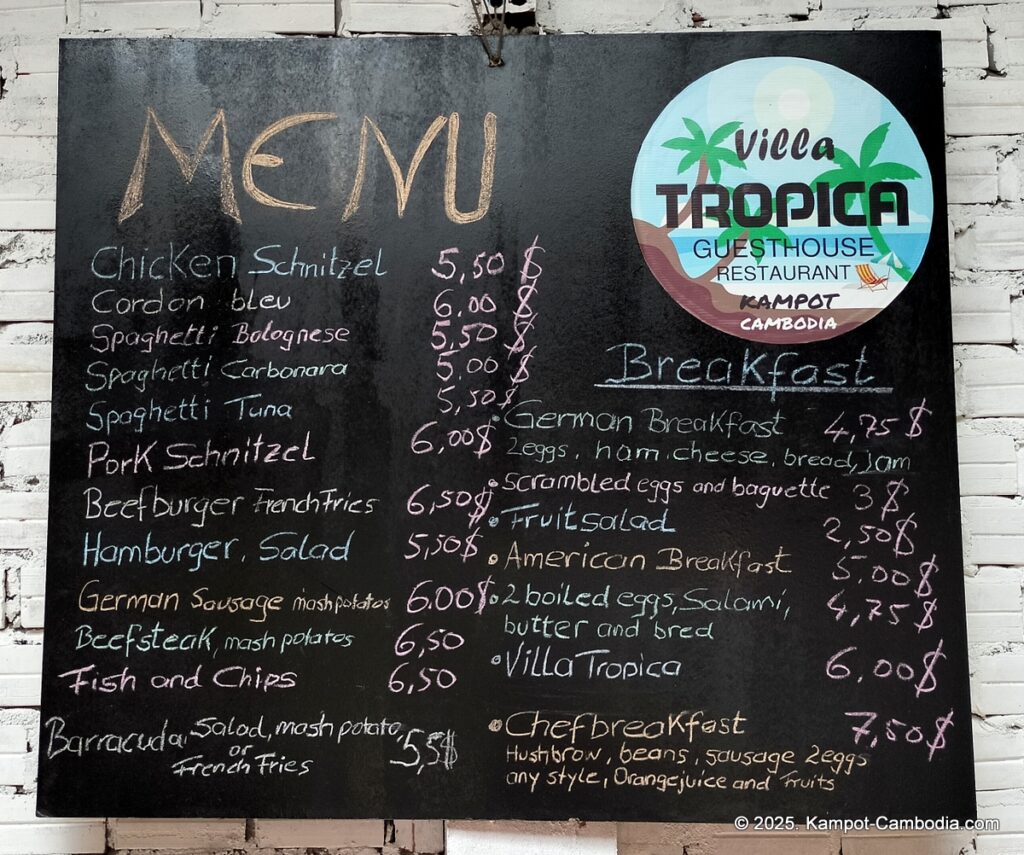 MENU
Chicken Schnitzel 5,50 $
Cordon bleu 6.00 $
Spaghetti Bolognese 5,50 $
Spaghetti Carbonara 5,00 $
Spaghetti Tuna 5,50 $
Pork Schnitzel 6,00$
Beefburger French Fries 6,50$
Hamburger, Salad 5,50$
German Sausage mashpotatos 6.00$
Beefsteak, mash potatos 6,50
Fish and Chips 6,50
Barracuda, Salad, mash potato, 5,5$
or
French Fries
Villa
TROPICA
GUESTHOUSE
RESTAURANT
KAMPOT
CAMBODIA
Breakfast
• German Breakfast 4,75 $
2eggs, ham, cheese, bread, Jam
• Scrambled eggs and baguette 3 $
• Fruitsalad 2,50$
• American Breakfast 5,00$
• 2 boiled eggs, Salami, 4,75 $
butter and bred
• Villa Tropica 6,00$
• Chefbreakfast 7,50$
Hushbrow, beans, sausage 2eggs
any style, Orangejuice and Fruits
© 2025. Kampot-Cambodia.com